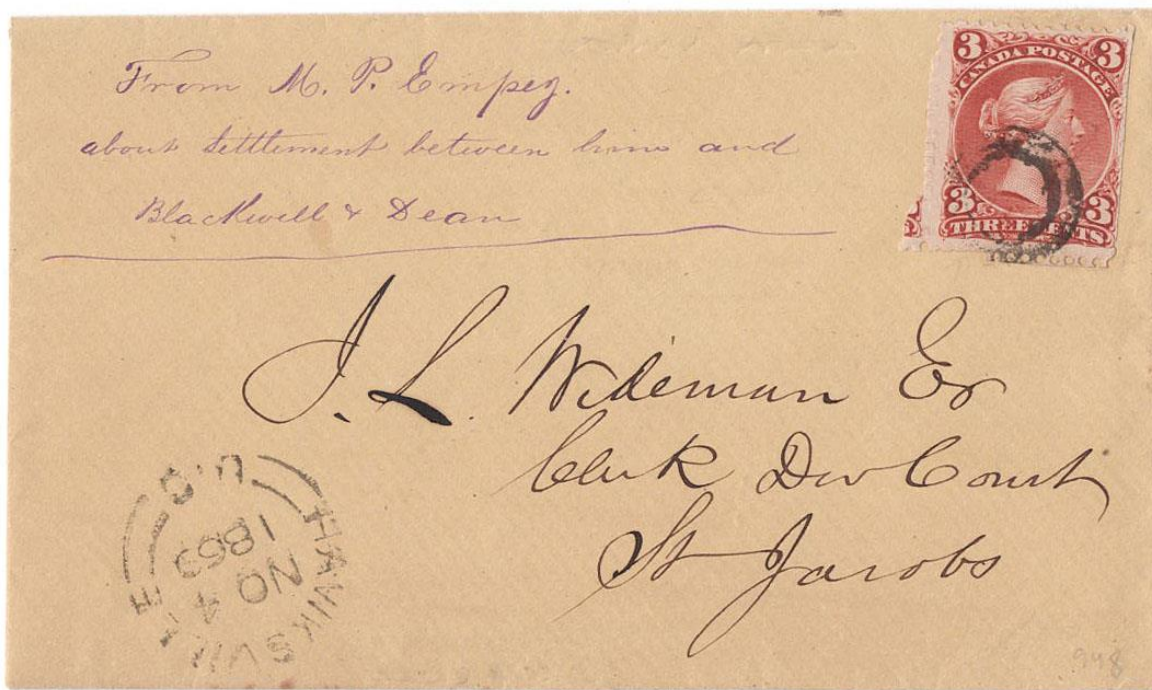 From M. P. Empey.
about Settlement between him and
Blackwell & Dean
3 3
CANADA POSTAGE
3 3
THREE CENTS
J. L. Wideman Er
Clerk Div Court
St Jacobs
HAWKSVILLE
U.C
NO 4
1869
948